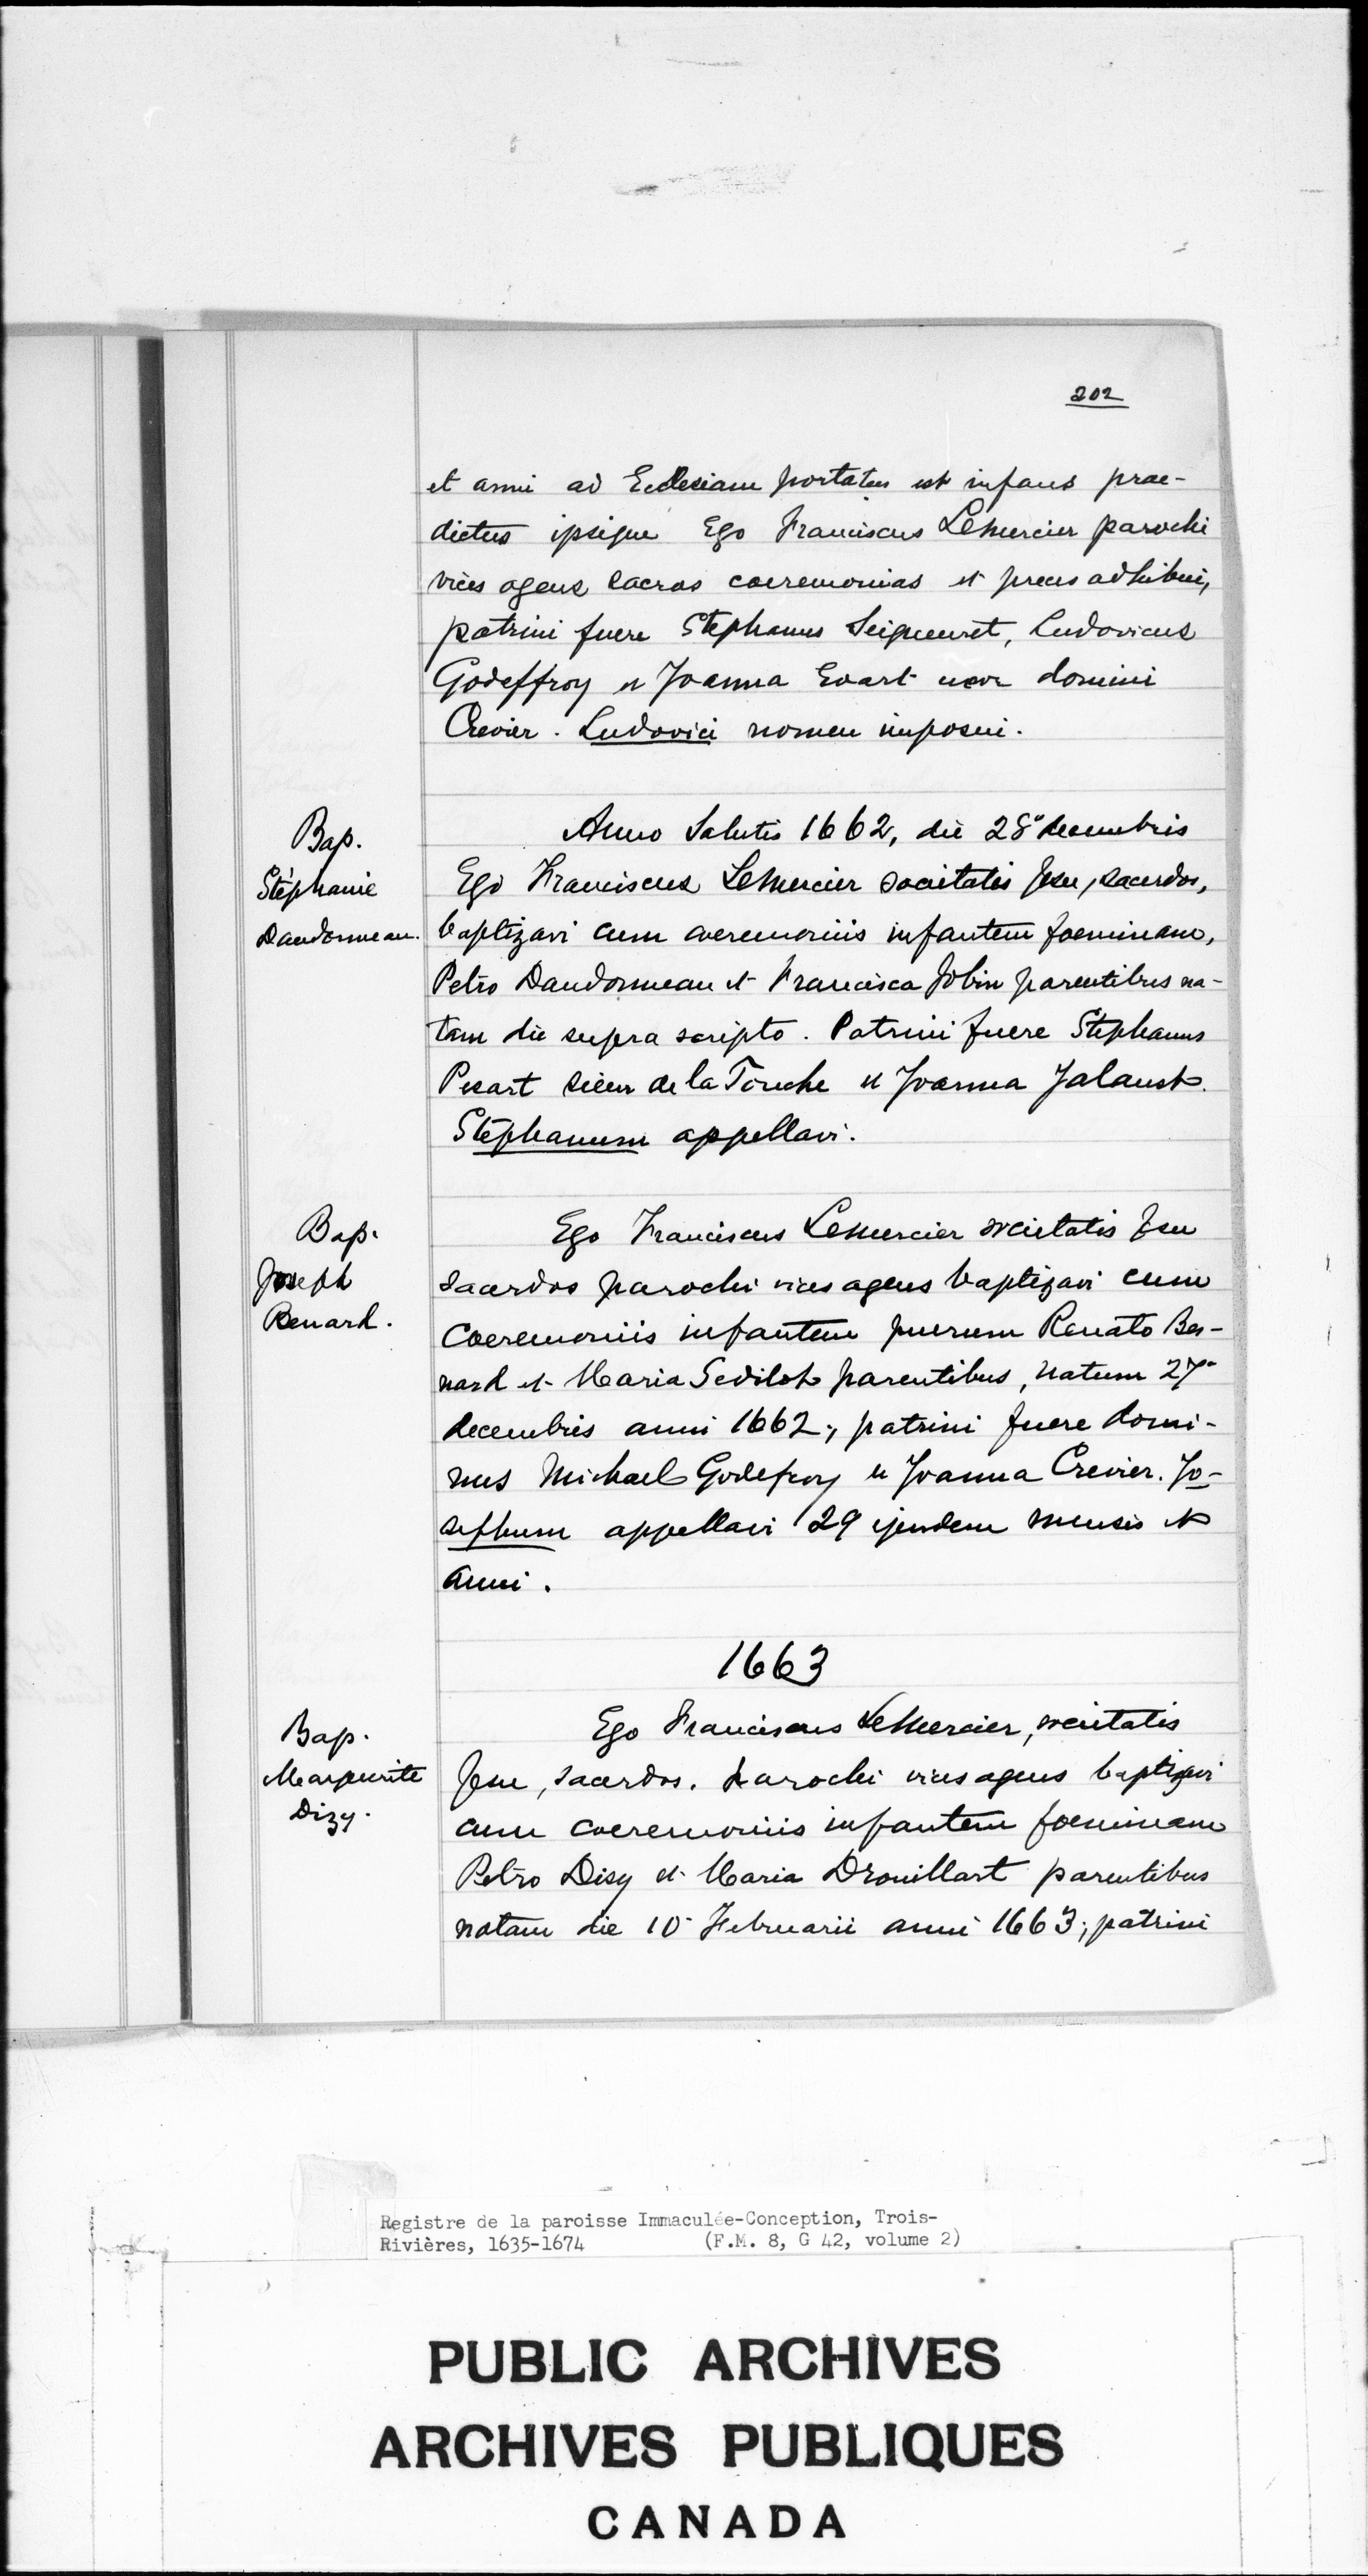 202
et anni ad Ecclesiam portatus est infans prae-
dictus ipsique Ego Franciscus LeMercier parochi
vices agens sacras coeremonias et preces adhibui,
patrini fuere Stephanus Seigneuret, Ludovicus
Godeffroy et Joanna Evart uxor domini
Crevier. Ludovici nomen imposui.
Bap.
Stéphanie
Daudonneau.
Anno Salutis 1662, die 28a decembris
Ego Franciscus LeMercier societatis Jesu, sacerdos,
baptizavi cum coeremoniis infantem foeminam,
Petro Daudonneau et Francisca Jobin parentibus na-
tam die supra scripto. Patrini fuere Stephanus
Pezart sieur de la Touche et Joanna Jalaust.
Stéphanum appellavi.
Bap.
Joseph
Benard.
Ego Franciscus LeMercier societatis Jesu
sacerdos parochi vices agens baptizavi cum
coeremoniis infantem puerum Renato Bes-
nard et Maria Sedilot parentibus, natum 27a
decembris anni 1662; patrini fuere domi-
nus Michael Godefroy et Joanna Crevier. Jo-
sephum appellavi 29 ejusdem mensis et
anni.
1663
Bap.
Marguerite
Dizy.
Ego Franciscus LeMercier, societatis
Jesu, sacerdos. parochi vices agens baptizavi
cum coeremoniis infantem foeminam
Petro Disy et Maria Drouillart parentibus
natam die 10 Februarii anni 1663; patrini
Registre de la paroisse Immaculée-Conception, Trois-
Rivières, 1635-1674 (F.M. 8, G 42, volume 2)
PUBLIC ARCHIVES
ARCHIVES PUBLIQUES
CANADA